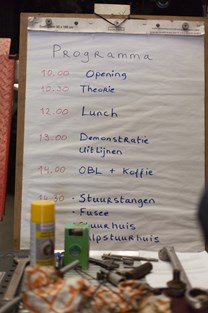 Programma
10.00 Opening
10.30 Theorie
12.00 Lunch
13.00 Demonstratie
Uitlijnen
14.00 OBL + Koffie
14.30 - Stuurstangen
- Fusee
- Stuurhuis
- Hulpstuurhuis